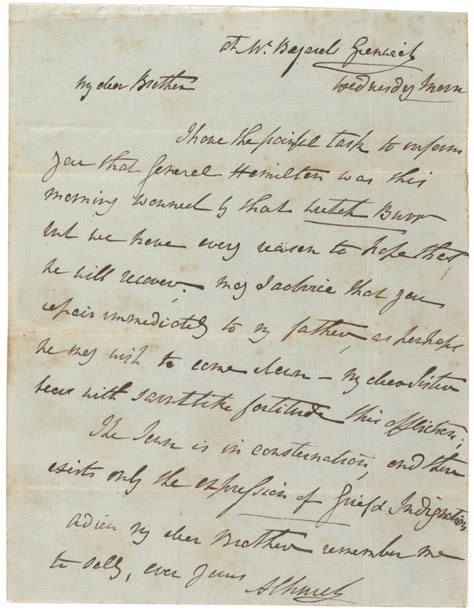 at Mr. Bayards Greenwich
Wednesday Morn
My dear Brother
I have the painful task to inform
you that General Hamilton was this
morning wounded by that wretch Burr
but we have every reason to hope that
he will recover. May I advice that you
repair immediately to my father, as perhaps
he may wish to come down – My dear Sister
bears with saintlike fortitude this affliction.
The Town is in consternation, and there
exists only the expression of Grief & Indignation
adieu my dear Brother remember me
to Sally, ever yours
A Church